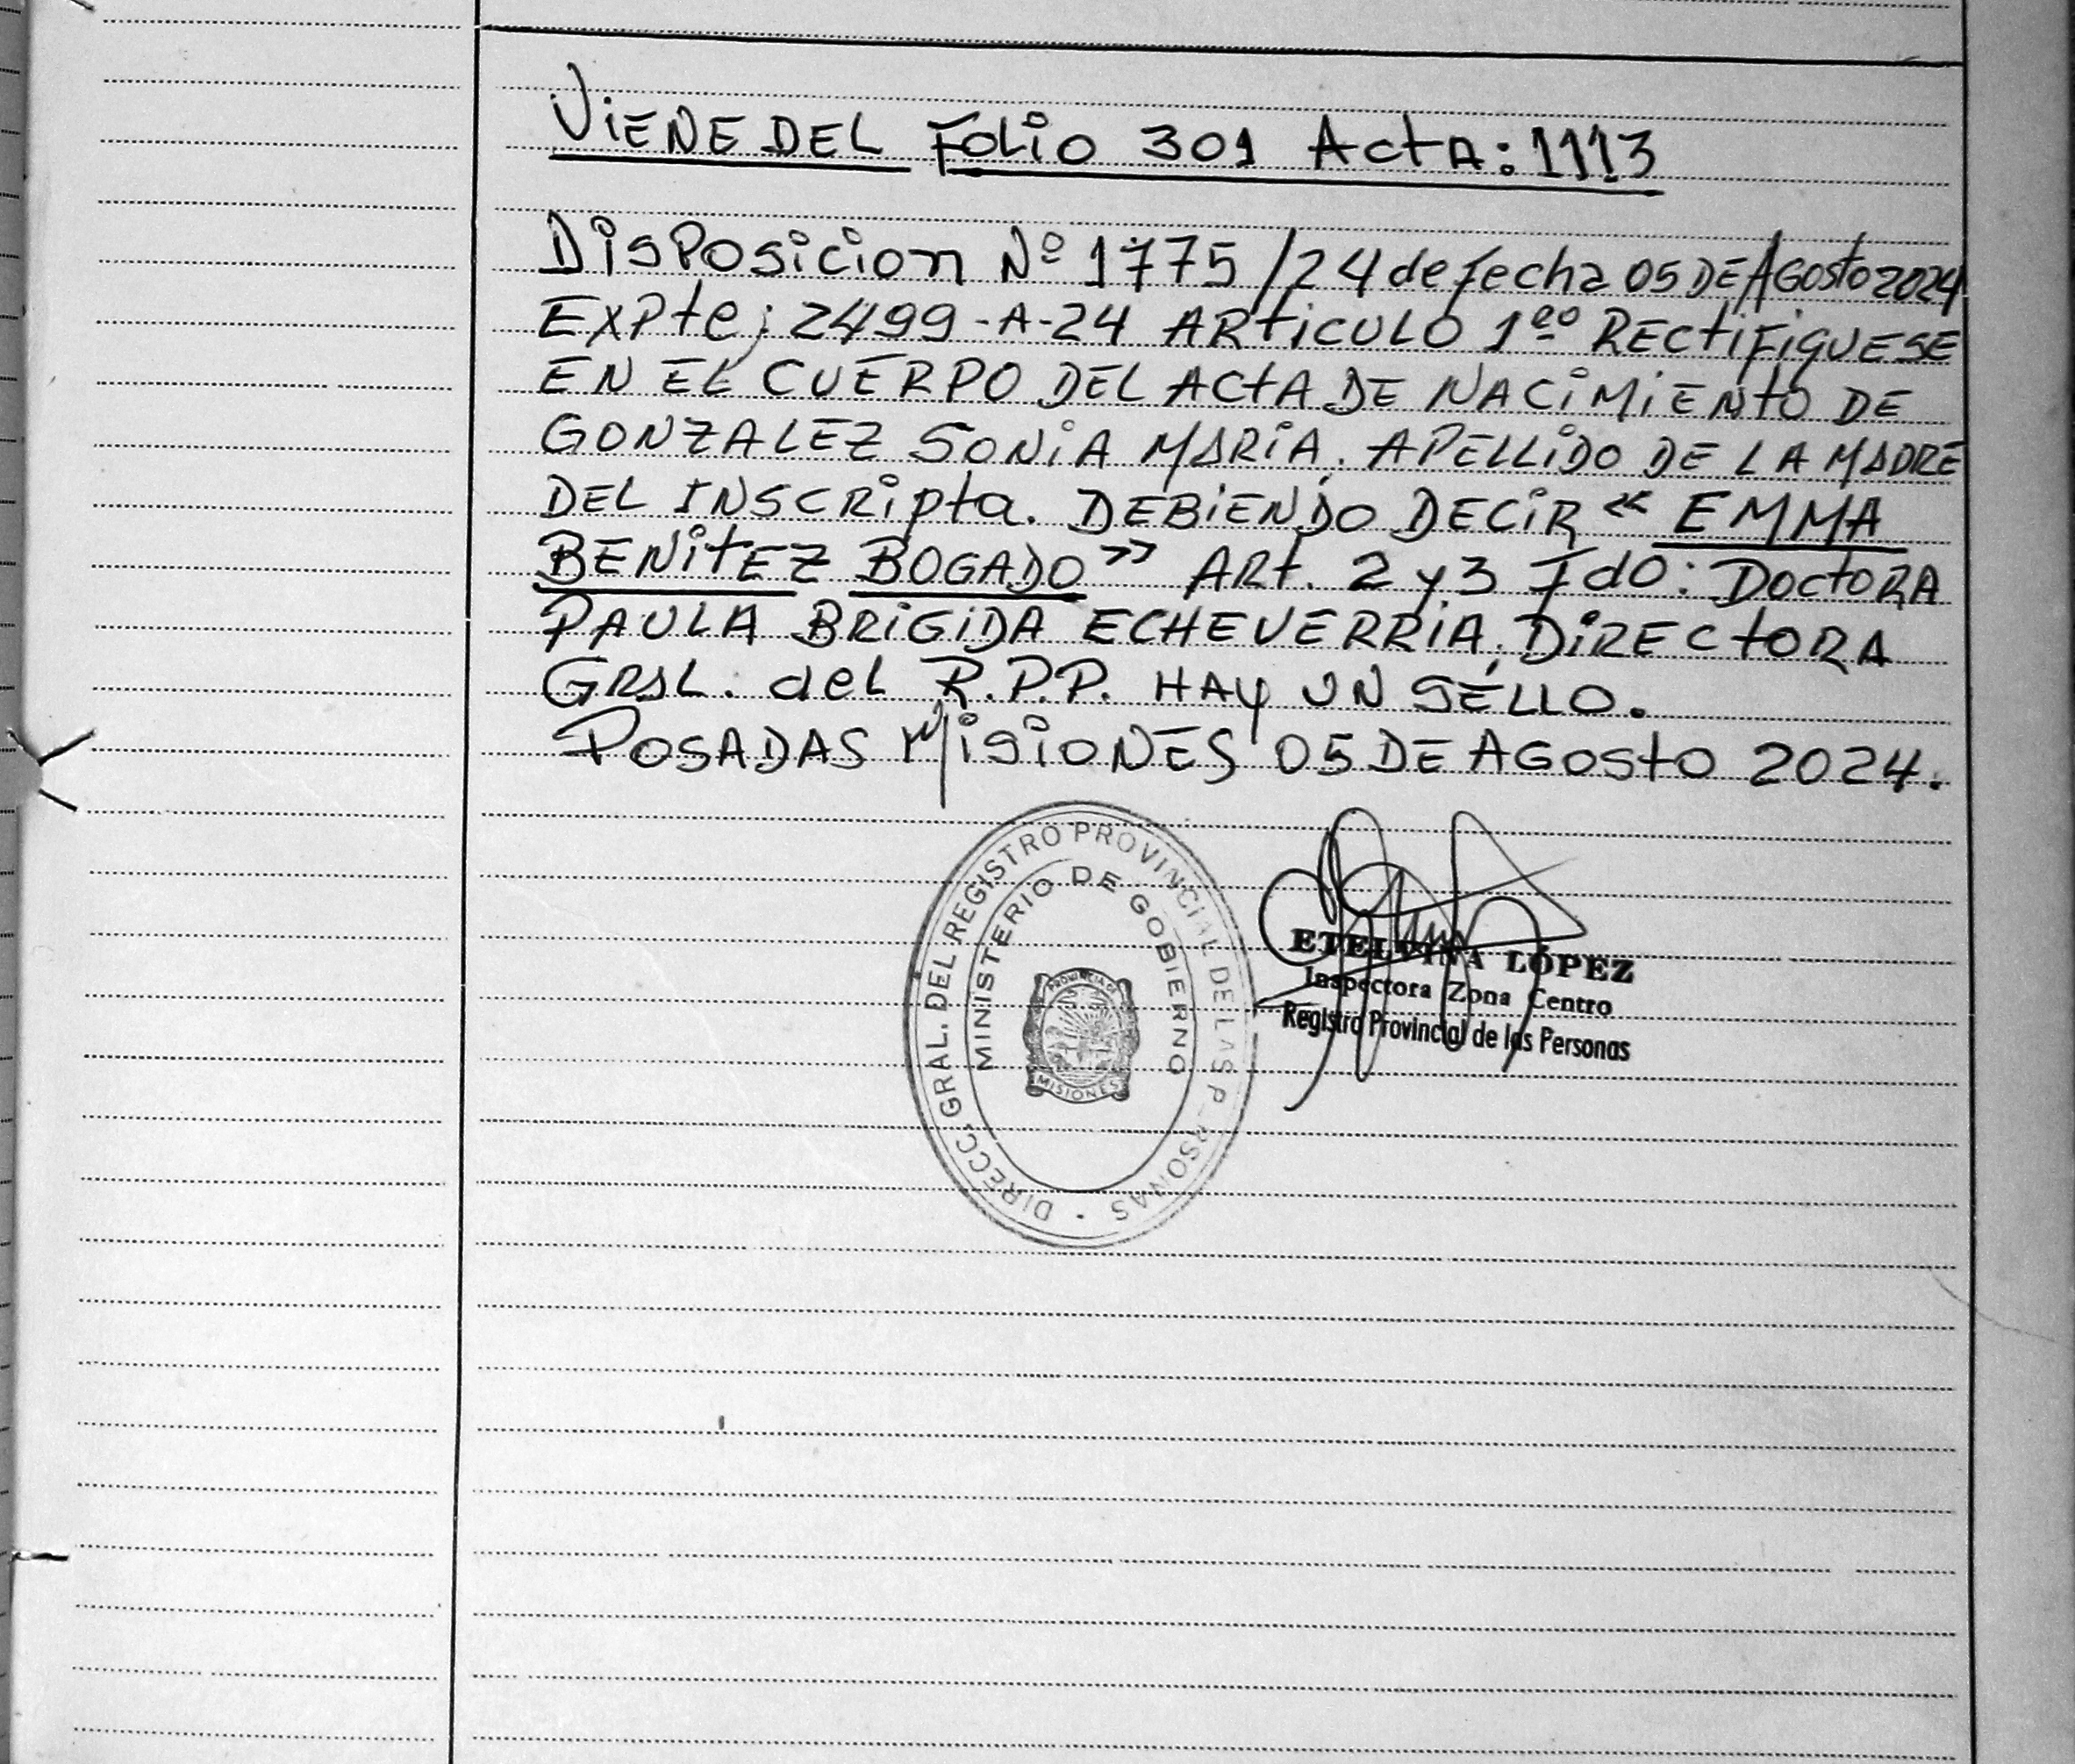 VIENE DEL FOLIO 301 ACTA: 1113
DISPOSICION Nº 1775/24 de fecha 05 DE AGOSTO 2024
EXPte; 2499-A-24 ARTICULO 1ero RECTIFIQUESE
EN EL CUERPO DEL ACTA DE NACIMIENTO DE
GONZALEZ SONIA MARIA, APELLIDO DE LA MADRE
DEL INSCRIPTA. DEBIENDO DECIR « EMMA
BENITEZ BOGADO » ART. 2 y 3 Fdo: DOCTORA
PAULA BRIGIDA ECHEVERRIA, DIRECTORA
GRAL. del R.P.P. HAY UN SELLO.
POSADAS MISIONES 05 DE AGOSTO 2024.
DIRECC. GRAL. DEL REGISTRO PROVINCIAL DE LAS P RSONAS
MINISTERIO DE GOBIERNO
PROVINCIA DE
MISIONES
ETELVINA LÓPEZ
Inspectora Zona Centro
Registro Provincial de las Personas